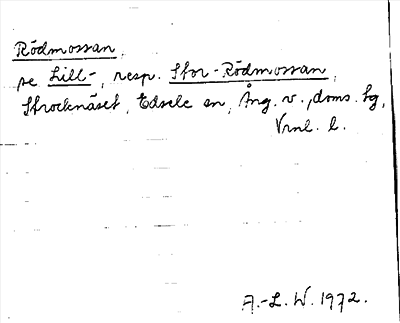 Rödmossan,
se Lill-, resp. Stor-Rödmossan,
Strocknäset, Edsele sn, Ång. v., doms. hg,
Vrnl. l.
A.-L. W. 1972.